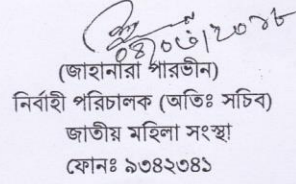 ০৪/০৩/২০১৮
(জাহানারা পারভীন)
নির্বাহী পরিচালক (অতিঃ সচিব)
জাতীয় মহিলা সংস্থা
ফোনঃ ৯৩৪২৩৪১